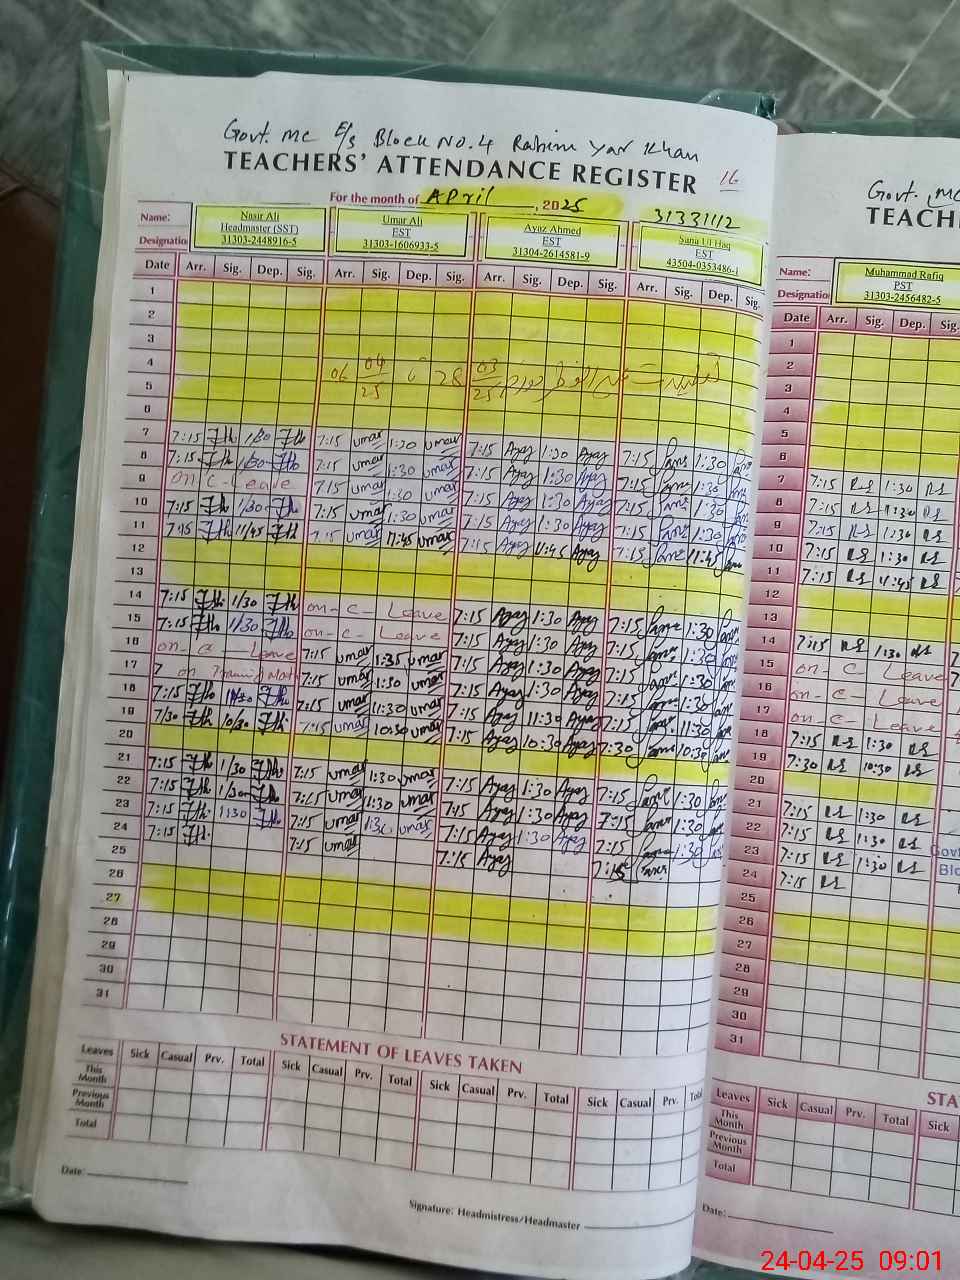 Govt. MC E/s Block No. 4 Rahim Yar Khan
TEACHERS' ATTENDANCE REGISTER 16
For the month of April, 2025
31331112
Name: Nasir Ali Umar Ali Ayaz Ahmed Sana Ul Haq
Designatio Headmaster (SST) EST EST EST
31303-2448916-5 31303-1606933-5 31304-2614581-9 43504-0353486-1
Date Arr. Sig. Dep. Sig. Arr. Sig. Dep. Sig. Arr. Sig. Dep. Sig. Arr. Sig. Dep. Sig.
1
2
3
4
5
6
7 7:15 1/30 7:15 umar 1:30 umar 7:15 Ayaz 1:30 Ayaz 7:15 Sana 1:30 Sana
8 7:15 1/30 7:15 umar 1:30 umar 7:15 Ayaz 1:30 Ayaz 7:15 Sana 1:30 Sana
9 on C-Leave 7:15 umar 1:30 umar 7:15 Ayaz 1:30 Ayaz 7:15 Sana 1:30 Sana
10 7:15 1/30 7:15 umar 1:30 umar 7:15 Ayaz 1:30 Ayaz 7:15 Sana 1:30 Sana
11 7:15 11/45 7:15 umar 11:45 umar 7:15 Ayaz 11:45 Ayaz 7:15 Sana 11:45 Sana
12
13
14 7:15 1/30 on-C-Leave 7:15 Ayaz 1:30 Ayaz 7:15 Sana 1:30 Sana
15 7:15 1/30 on-C-Leave 7:15 Ayaz 1:30 Ayaz 7:15 Sana 1:30 Sana
16 on-C-Leave 7:15 umar 1:35 umar 7:15 Ayaz 1:30 Ayaz 7:15 Sana 1:30 Sana
17 on 7:15 umar 1:30 umar 7:15 Ayaz 1:30 Ayaz 7:15 Sana 1:30 Sana
18 7:15 7:15 umar 11:30 umar 7:15 Ayaz 11:30 Ayaz 7:15 Sana 11:30 Sana
19 7/30 10/30 7:15 umar 10:30 umar 7:15 Ayaz 10:30 Ayaz 7:30 Sana 10:30 Sana
20
21 7:15 1/30 7:15 umar 1:30 umar 7:15 Ayaz 1:30 Ayaz 7:15 Sana 1:30 Sana
22 7:15 1/30 7:15 umar 1:30 umar 7:15 Ayaz 1:30 Ayaz 7:15 Sana 1:30 Sana
23 7:15 1:30 7:15 umar 1:30 umar 7:15 Ayaz 1:30 Ayaz 7:15 Sana 1:30 Sana
24 7:15 7:15 umar 7:15 Ayaz 7:15 Sana
25
26
27
28
29
30
31
STATEMENT OF LEAVES TAKEN
Leaves Sick Casual Prv. Total Sick Casual Prv. Total Sick Casual Prv. Total Sick Casual Prv. Total
This Month
Previous Month
Total
Date:
Signature: Headmistress/Headmaster
Govt. MC
TEACH
Name: Muhammad Rafiq
Designation PST
31303-2456482-5
Date Arr. Sig. Dep. Sig.
1
2
3
4
5
6
7 7:15 RS 1:30 RS
8 7:15 RS 1:30 RS
9 7:15 RS 1:30 RS
10 7:15 RS 1:30 RS
11 7:15 RS 11:45 RS
12
13
14 7:15 RS 1:30 RS
15 on-C Leave
16 on-C-Leave
17 on-C-Leave
18 7:15 RS 1:30 RS
19 7:30 RS 10:30 RS
20
21 7:15 RS 1:30 RS
22 7:15 RS 1:30 RS
23 7:15 RS 1:30 RS
24 7:15 RS
25
26
27
28
29
30
31
Govt
Blo
STA
Leaves Sick Casual Prv. Total Sick
This Month
Previous Month
Total
Date:
24-04-25 09:01